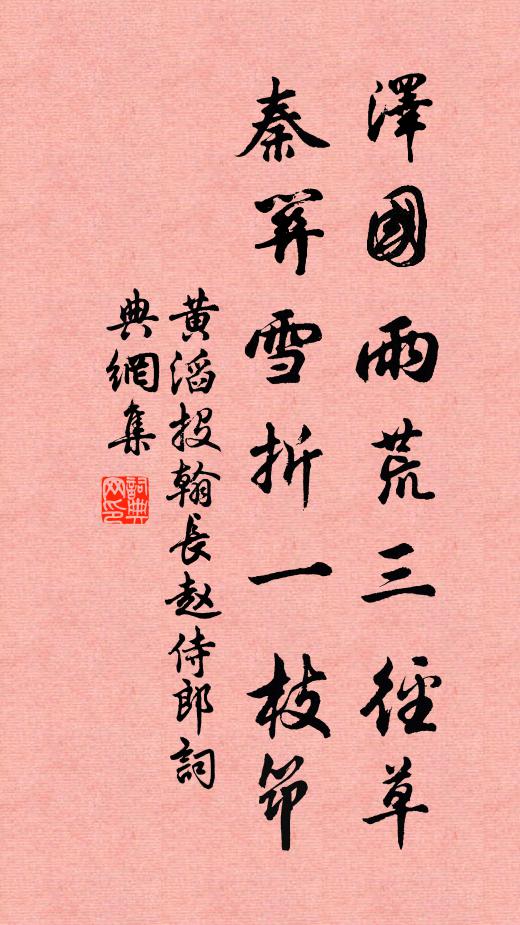 澤國雨荒三徑草
秦關雪折一枝筇
黄滔投翰長赵侍郎詞
典網集
詞典网印